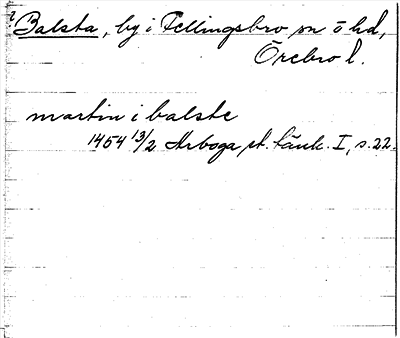 Balsta, by i Fellingsbro sn ö hd,
Örebro l.
martin i balste
1454 13/2 Arboga st. tänk. I, s. 22.